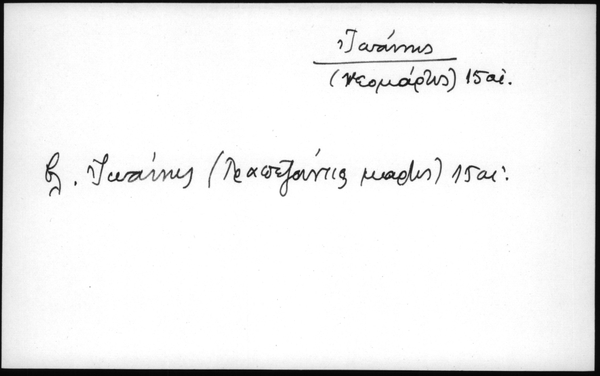 Ἰωάννης
(νεομάρτυς) 15 αἰ.
βλ. Ἰωάννης (Τραπεζούντιος μάρτυς) 15 αἰ.